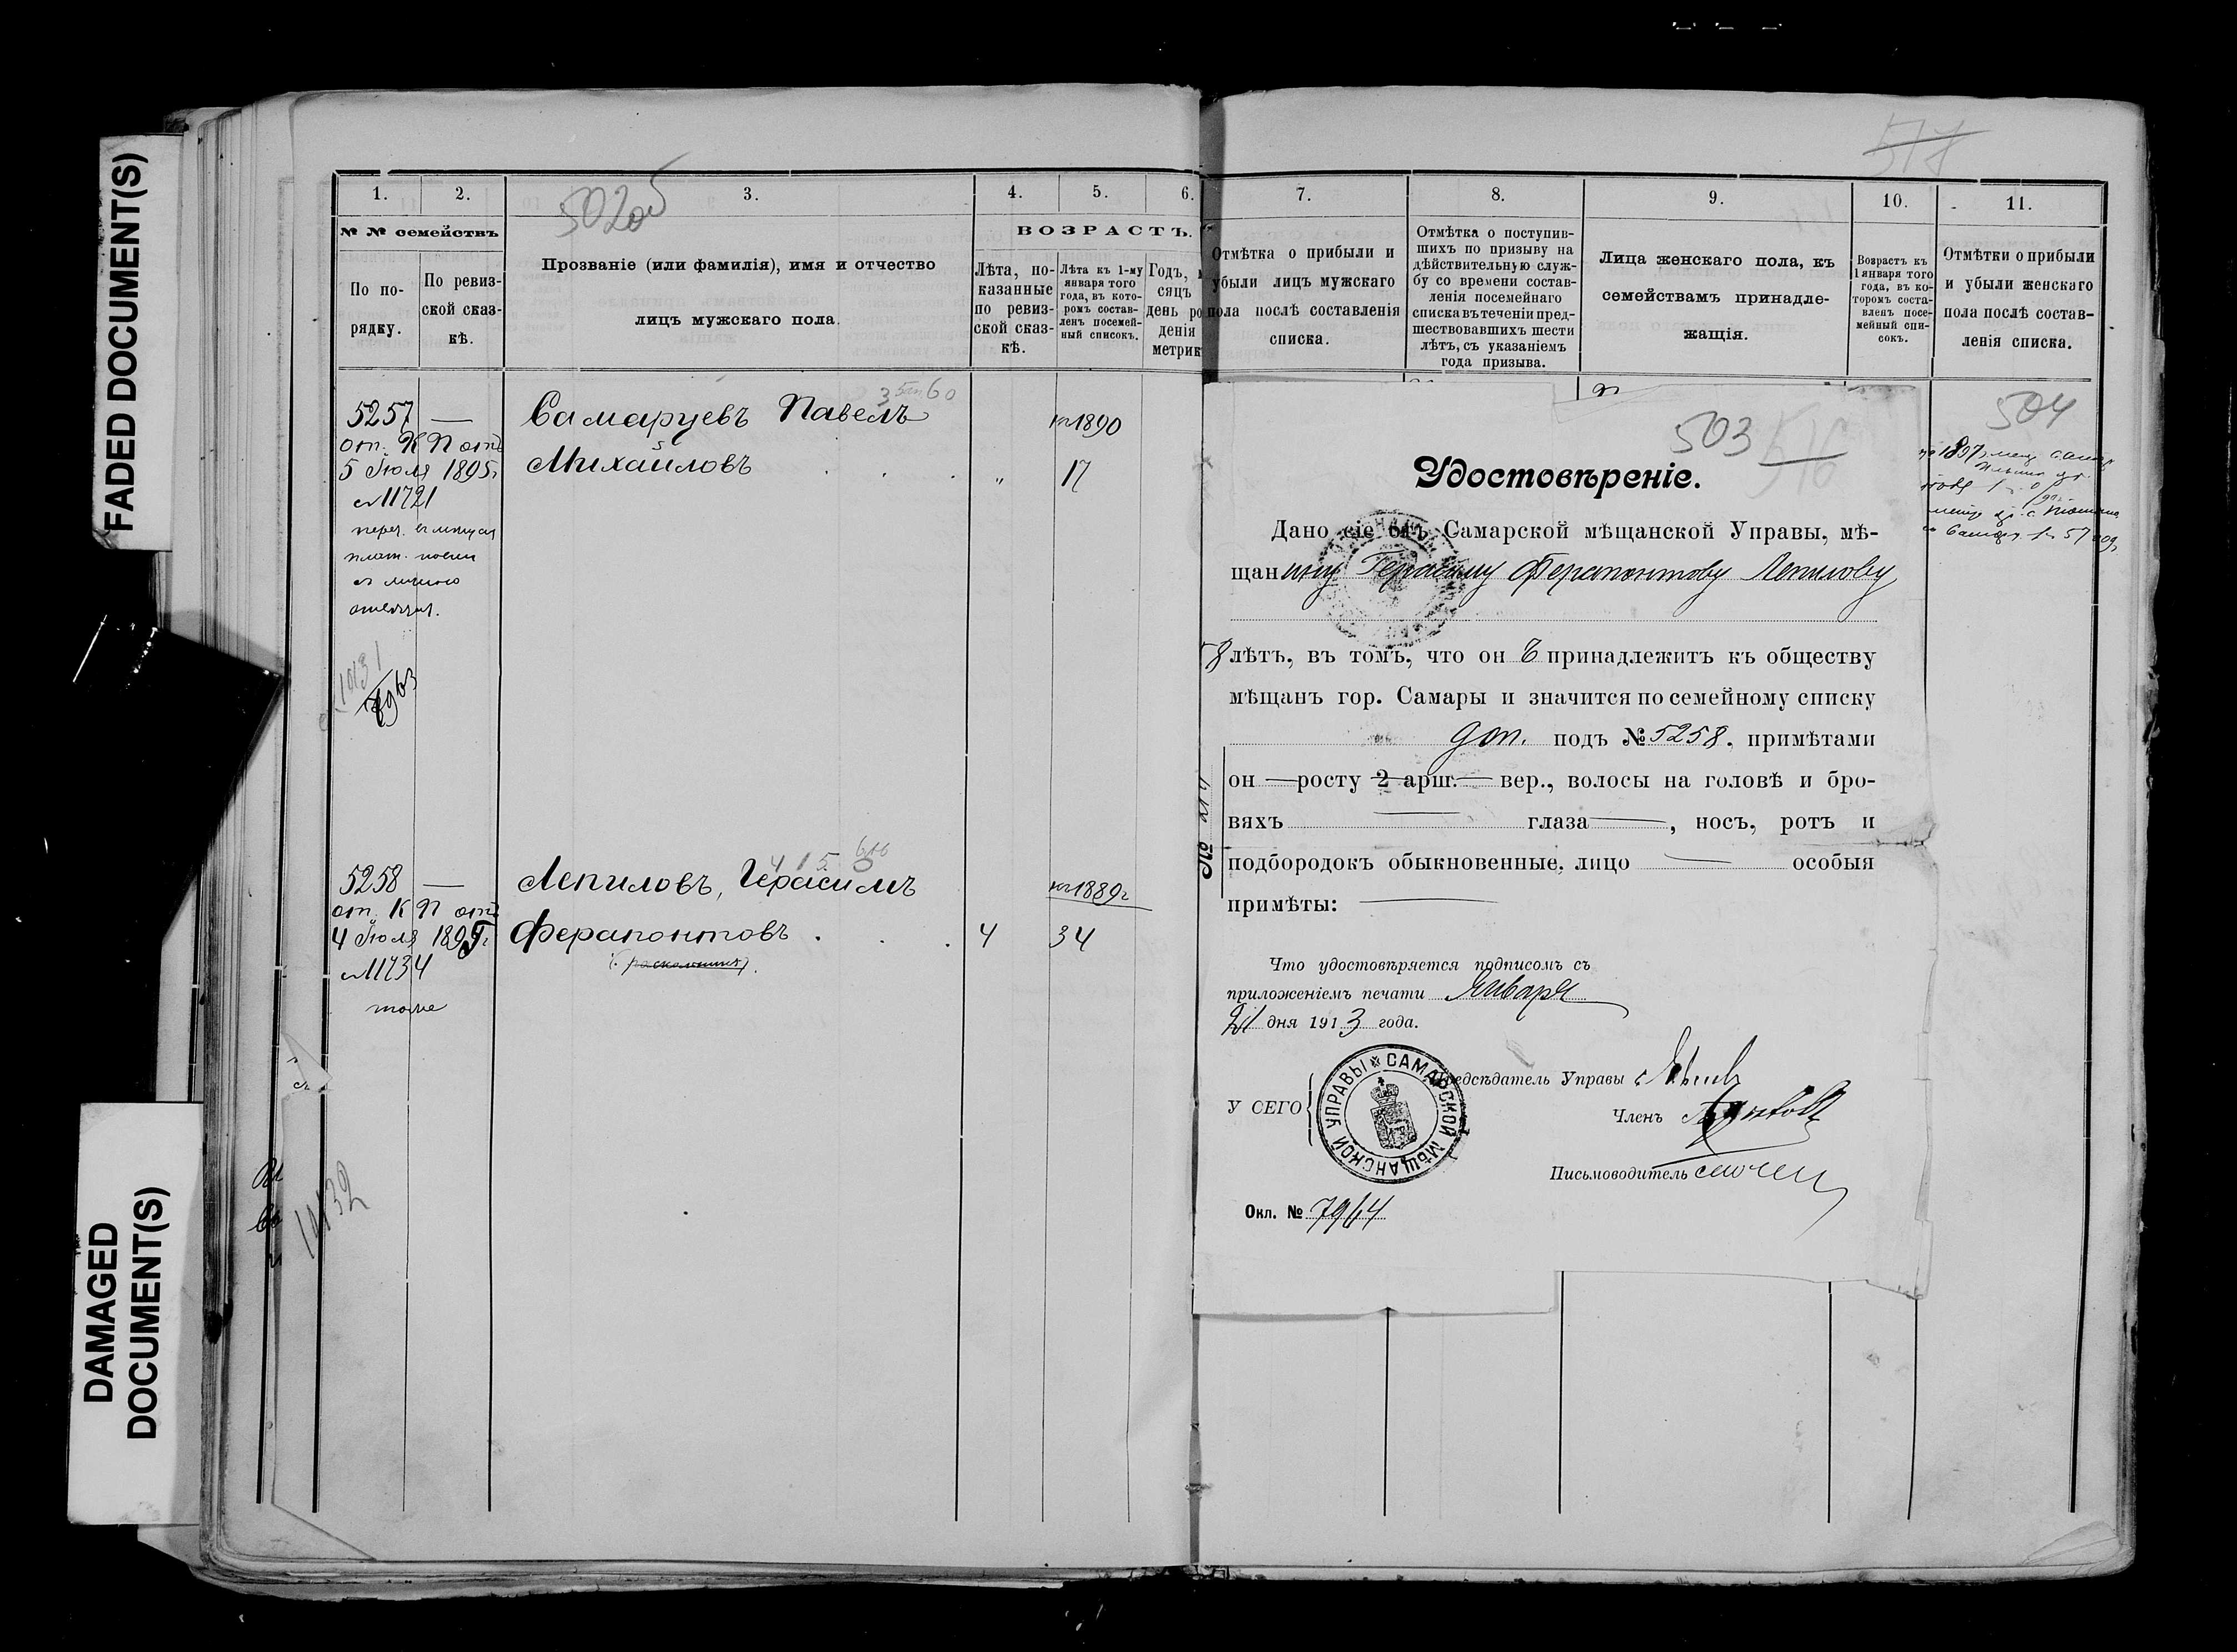 FADED DOCUMENT(S)
DAMAGED
DOCUMENT(S)
1.
2.
3.
4.
5.
6.
№ № семействъ
По по-
рядку.
По ревиз-
ской сказ-
кѣ.
502об
Прозваніе (или фамилія), имя и отчество
лицъ мужскаго пола.
ВОЗРАСТЪ.
Лѣта, по-
казанные
по ревиз-
ской сказ-
кѣ.
Лѣта къ 1-му
января того
года, въ кото-
ромъ состав-
ленъ посемей-
ный списокъ.
Годъ,
сяцъ
день ро
денія
метрик
5257 —
Самарцевъ Павелъ
Михайловъ
„
къ 1890
17
от. К П отъ
5 Іюля 1895г
№ 11721
7963
5258 —
Лепиловъ, Герасимъ
Ферапонтовъ
4
къ 1889г
34
от. К П отъ
4 Іюля 1895г
№ 11734
тоже
517
7.
8.
9.
10.
11.
Отмѣтка о прибыли и
убыли лицъ мужскаго
пола послѣ составленія
списка.
Отмѣтка о поступив-
шихъ по призыву на
дѣйствительную служ-
бу со времени состав-
ленія посемейнаго
списка въ теченіи пред-
шествовавшихъ шести
лѣтъ, съ указаніемъ
года призыва.
Лица женскаго пола, къ
семействамъ принадле-
жащія.
Возрастъ къ
1 января того
года, въ ко-
торомъ соста-
вленъ посе-
мейный спи-
сокъ.
Отмѣтки о прибыли
и убыли женскаго
пола послѣ состав-
ленія списка.
504
503 516
Удостовѣреніе.
Дано сіе отъ Самарской мѣщанской Управы, мѣ-
щанину Герасиму Ферапонтову Лепилову
58 лѣтъ, въ томъ, что онъ принадлежитъ къ обществу
мѣщанъ гор. Самары и значится по семейному списку
доп. подъ № 5258, примѣтами
он — росту 2 арш. — вер., волосы на головѣ и бро-
вяхъ — глаза —, носъ, ротъ и
подбородокъ обыкновенные, лицо — особыя
примѣты: —
Что удостовѣряется подписомъ съ
приложеніемъ печати Января
21 дня 1913 года.
Предсѣдатель Управы
Членъ
Письмоводитель
У СЕГО
САМАРСКОЙ МѢЩАНСКОЙ УПРАВЫ
Окл. № 7964